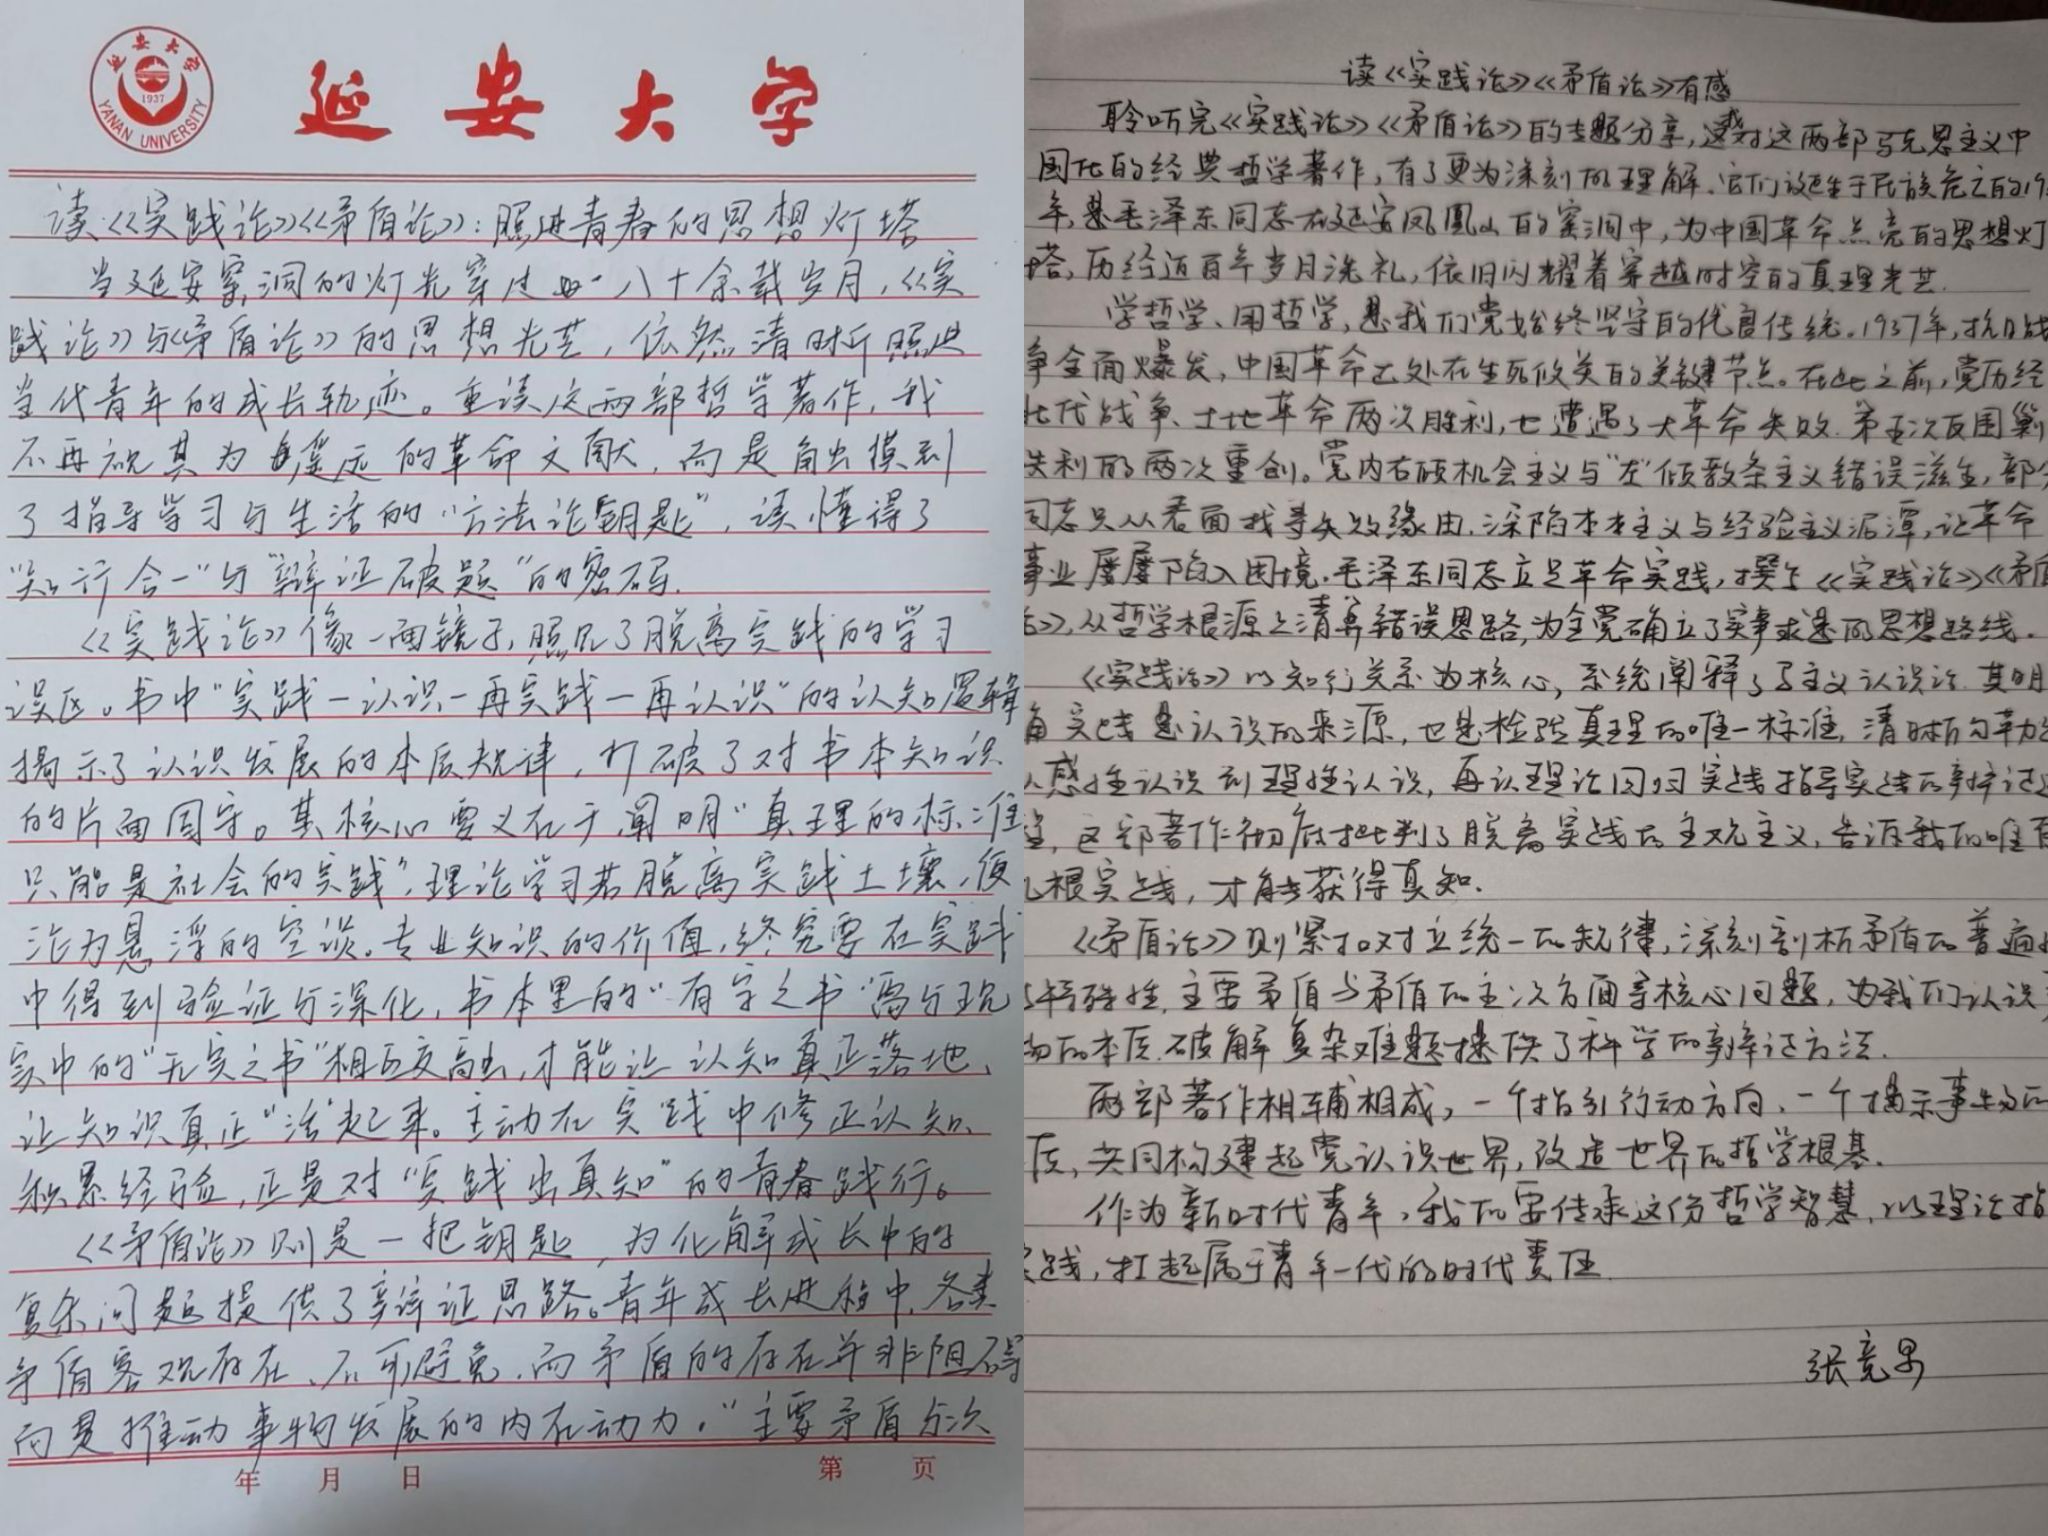 延安大学
1937
YANAN UNIVERSITY
读《实践论》《矛盾论》：照进青春的思想灯塔
当延安窑洞的灯光穿过八十余载岁月，《实
践论》与《矛盾论》的思想光芒，依然清晰照进
当代青年的成长轨迹。重读这两部哲学著作，我
不再视其为遥远的革命文献，而是触摸到
了指导学习与生活的“方法论钥匙”，读懂得了
“知行合一”与“辩证破题”的密码。
《实践论》像一面镜子，照见了脱离实践的学习
误区。书中“实践—认识—再实践—再认识”的认知逻辑
揭示了认识发展的本质规律，打破了对书本知识
的片面固守。其核心要义在于阐明“真理的标准
只能是社会的实践”，理论学习若脱离实践土壤，便
沦为悬浮的空谈。专业知识的价值，终究要在实践
中得到验证与深化，书本里的“有字之书”需与现
实中的“无实之书”相互交融，才能让认知真正落地、
让知识真正“活”起来。主动在实践中修正认知、
积累经验，正是对“实践出真知”的青春践行。
《矛盾论》则是一把钥匙，为化解成长中的
复杂问题提供了辩证思路。青年成长进程中，各类
矛盾客观存在、不可避免，而矛盾的存在并非阻碍
而是推动事物发展的内在动力。“主要矛盾与次
年 月 日 第 页
读《实践论》《矛盾论》有感
聆听完《实践论》《矛盾论》的专题分享，我对这两部马克思主义中
国化的经典哲学著作，有了更为深刻的理解。它们诞生于民族危亡的19
年，是毛泽东同志在延安凤凰山的窑洞中，为中国革命点亮的思想灯
塔，历经近百年岁月洗礼，依旧闪耀着穿越时空的真理光芒。
学哲学、用哲学，是我们党始终坚守的优良传统。1937年，抗日战
争全面爆发，中国革命正处在生死攸关的关键节点。在此之前，党历经
北伐战争、土地革命两次胜利，也遭遇了大革命失败、第五次反围剿
失利的两次重创。党内右倾机会主义与“左”倾教条主义错误滋生，部分
同志只从表面找寻失败缘由，深陷本本主义与经验主义泥潭，让革命
事业屡屡陷入困境。毛泽东同志立足革命实践，撰写《实践论》《矛盾
论》，从哲学根源上清算错误思路，为全党确立了实事求是的思想路线。
《实践论》以知行关系为核心，系统阐释了马主义认识论。其明
确实践是认识的来源，也是检验真理的唯一标准，清晰勾勒出
从感性认识到理性认识，再从理论回归实践指导实践的辩证过
这部著作彻底批判了脱离实践的主观主义，告诉我们唯有
扎根实践，才能获得真知。
《矛盾论》则紧扣对立统一的规律，深刻剖析矛盾的普遍
与特殊性、主要矛盾与矛盾的主次方面等核心问题，为我们认识
物的本质、破解复杂难题提供了科学的辩证方法。
两部著作相辅相成，一个指引行动方向、一个揭示事物的
质，共同构建起党认识世界，改造世界的哲学根基。
作为新时代青年，我们要传承这份哲学智慧，以理论指
实践，扛起属于青年一代的时代责任。
张竞